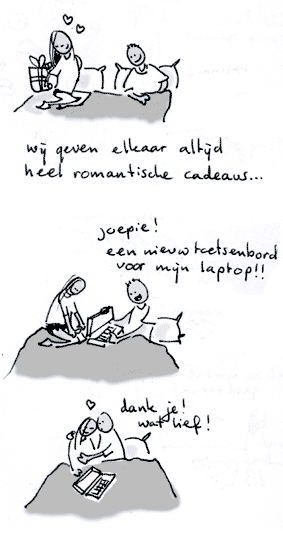 wij geven elkaar altijd
heel romantische cadeaus...
joepie!
een nieuw toetsenbord
voor mijn laptop!!
dank je!
wat lief!